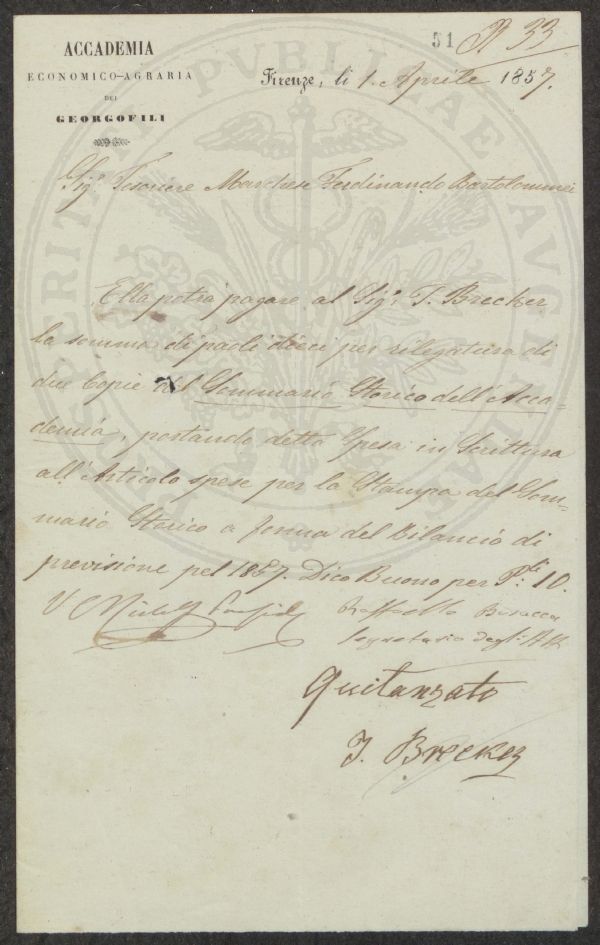 51 N 33
ACCADEMIA
ECONOMICO-AGRARIA
DEI
GEORGOFILI
Firenze, li 1. Aprile 1857.
PROSPERITATI PVBLICAE AVGENDAE
Sigr. Tesoriere Marchese Ferdinando Bartolommei
Ella potrà pagare al Sigr. T. Brecker
la somma di paoli dieci per rilegatura di
due Copie del Sommario Storico dell'Acca=
demia, portando detta Spesa in Scrittura
all'Articolo spese per la Stampa del Som=
mario Storico a forma del Bilancio di
previsione pel 1857. Dico Buono per Pli. 10.
V
Raffaello Busacca
Segretario degli Atti
Quitanzato
T. Brecker